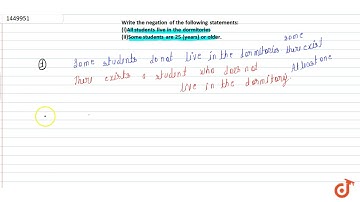 1449951
Write the negation of the following statements:
(i)All students live in the dormitories
(ii)Some students are 25 (years) or older.
some
① Some students do not live in the dormitories there exist
There exists a student who does not Atleast one
live in the dormitory.